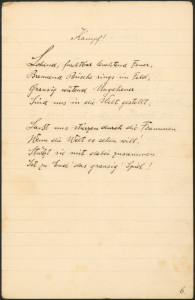 Kampf!
Lohend, furchtbar leuchtend Feuer,
Brennend Büsche rings im Feld,
Grausig wütend Ungeheuer
Sind uns in die Welt gestellt.
Laßt uns stürzen durch die Flammen
Wenn die Welt es sehen will!
Stürzt sie mit dabei zusammen
Ist zu End' das grausig Spiel!
6